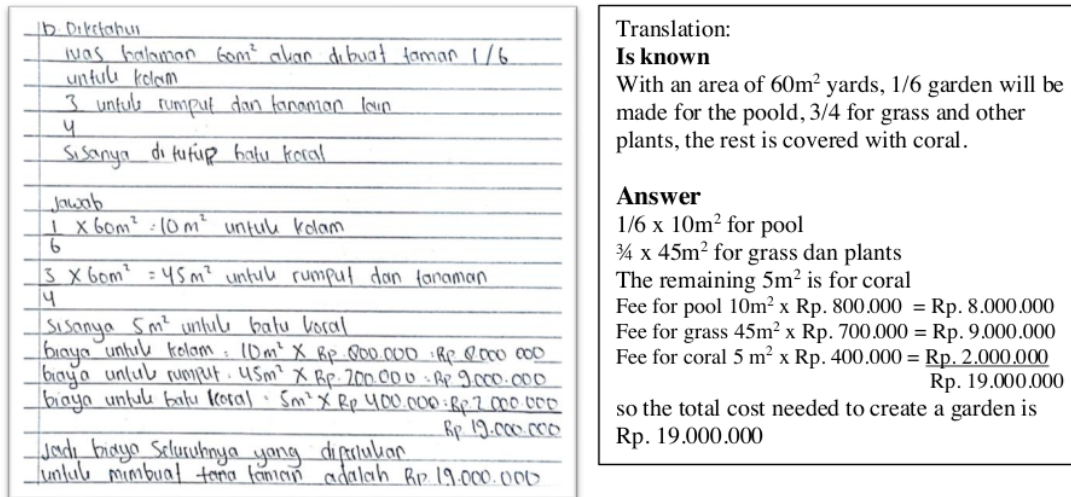 b. Diketahui
luas halaman 60m² akan dibuat taman 1/6
untuk kolam
3 untuk rumput dan tanaman lain
4
Sisanya di tutup batu koral
Jawab
1 X 60m² = 10 m² untuk kolam
6
3 X 60m² = 45 m² untuk rumput dan tanaman
4
Sisanya 5m² untuk batu koral
biaya untuk kolam : 10m² X Rp. 800.000 : Rp 8.000 000
biaya untuk rumput : 45m² X Rp. 200.000 : Rp 9.000.000
biaya untuk batu koral : 5m² X Rp 400.000 : Rp 2.000.000
Rp 19.000.000
Jadi biaya Seluruhnya yang diperlukan
untuk mimbuat tana taman adalah Rp. 19.000.000
Translation:
Is known
With an area of 60m² yards, 1/6 garden will be
made for the poold, 3/4 for grass and other
plants, the rest is covered with coral.
Answer
1/6 x 10m² for pool
¾ x 45m² for grass dan plants
The remaining 5m² is for coral
Fee for pool 10m² x Rp. 800.000 = Rp. 8.000.000
Fee for grass 45m² x Rp. 700.000 = Rp. 9.000.000
Fee for coral 5 m² x Rp. 400.000 = Rp. 2.000.000
Rp. 19.000.000
so the total cost needed to create a garden is
Rp. 19.000.000